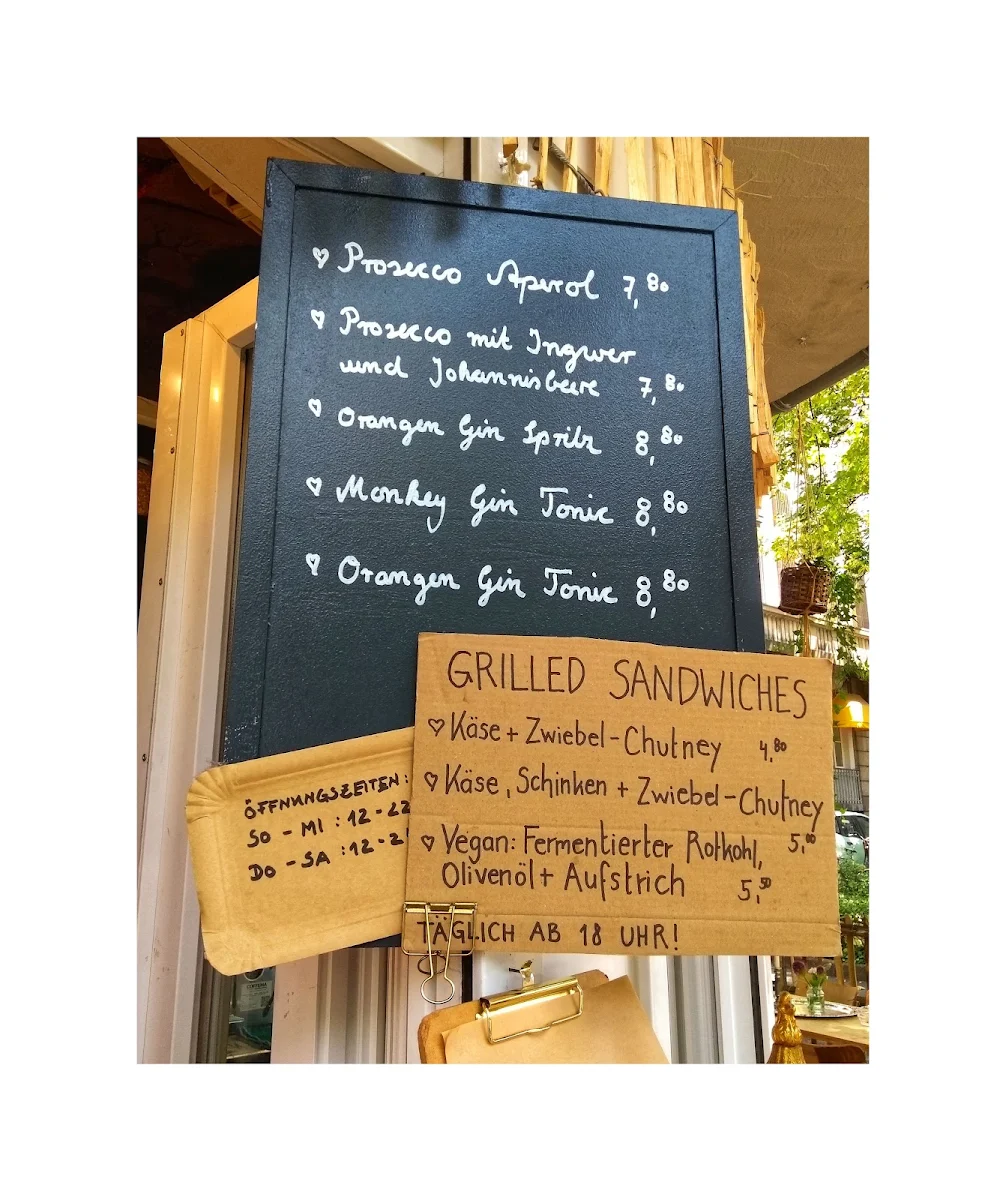 ♡ Prosecco Aperol 7,80
♡ Prosecco mit Ingwer
und Johannisbeere 7,80
♡ Orangen Gin Spritz 8,80
♡ Monkey Gin Tonic 8,80
♡ Orangen Gin Tonic 8,80
GRILLED SANDWICHES
♡ Käse + Zwiebel-Chutney 4,80
♡ Käse, Schinken + Zwiebel-Chutney
5,00
♡ Vegan: Fermentierter Rotkohl,
Olivenöl + Aufstrich 5,50
TÄGLICH AB 18 UHR!
ÖFFNUNGSZEITEN:
SO - MI : 12 - 22
DO - SA : 12 - 2